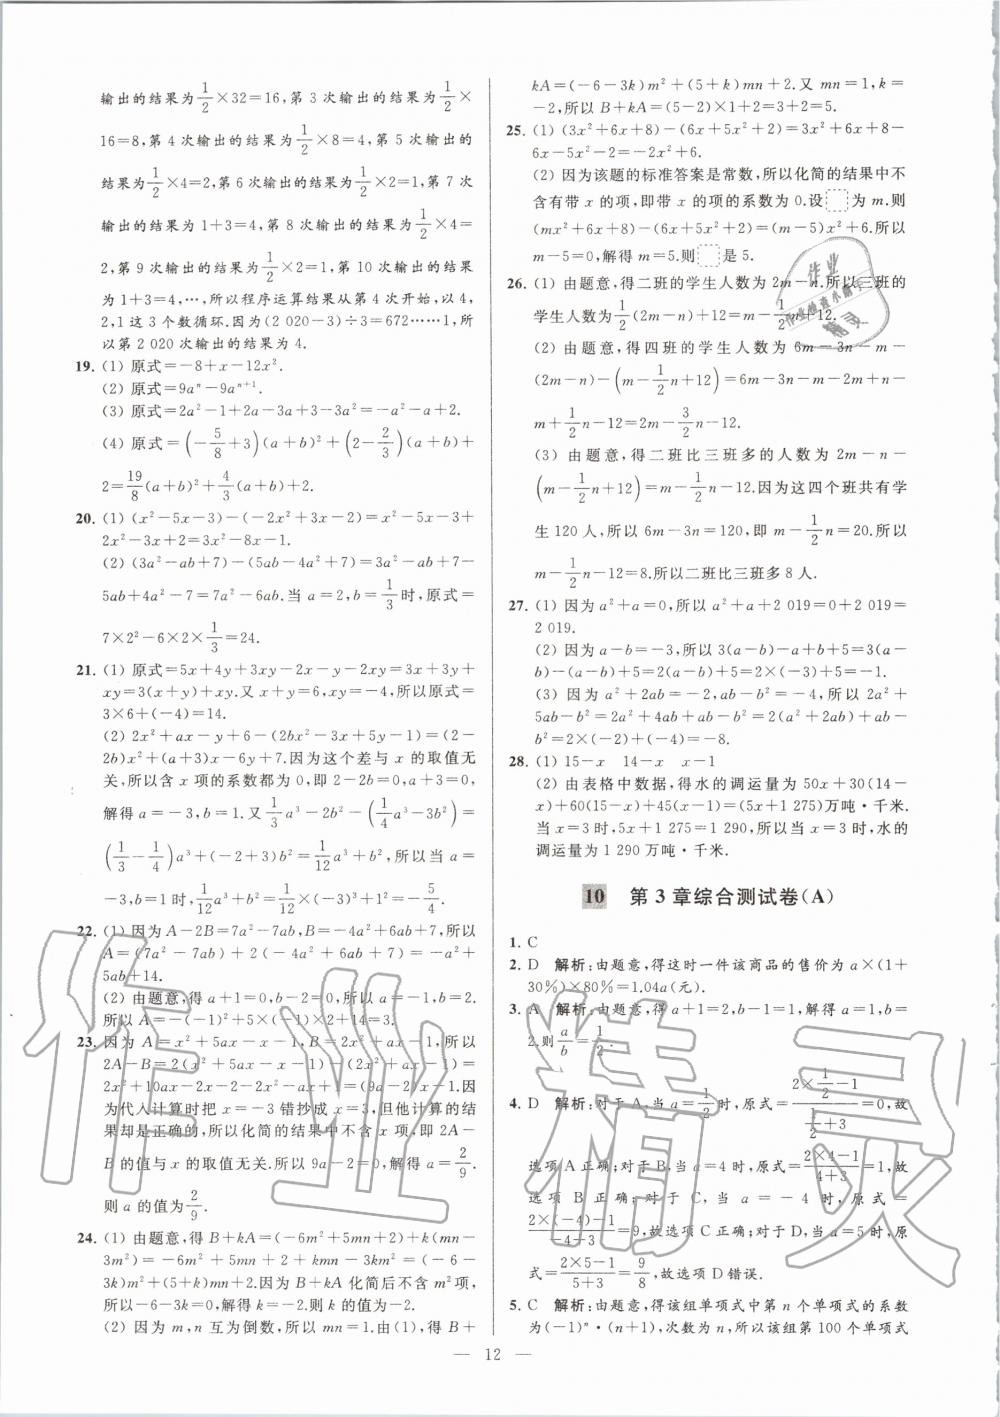 输出的结果为1/2×32=16,第 3 次输出的结果为1/2×
16=8,第 4 次输出的结果为1/2×8=4,第 5 次输出的结果为
1/2×4=2,第 6 次输出的结果为1/2×2=1,第 7 次
输出的结果为 1+3=4,第 8 次输出的结果为1/2×4=
2,第 9 次输出的结果为1/2×2=1,第 10 次输出的结果
为 1+3=4,…,所以程序运算结果从第 4 次开始,以 4,
2,1 这 3 个数循环.因为(2 020-3)÷3=672……1,所
以第 2 020 次输出的结果为 4.
19. (1) 原式=-8+x-12x².
(2) 原式=9aⁿ-9aⁿ⁺¹.
(3) 原式=2a²-1+2a-3a+3-3a²=-a²-a+2.
(4) 原式=(-5/8+3)(a+b)²+(2-2/3)(a+b)+
2=19/8(a+b)²+4/3(a+b)+2.
20. (1) (x²-5x-3)-(-2x²+3x-2)=x²-5x-3+
2x²-3x+2=3x²-8x-1.
(2) (3a²-ab+7)-(5ab-4a²+7)=3a²-ab+7-
5ab+4a²-7=7a²-6ab.当 a=2,b=1/3时,原式=
7×2²-6×2×1/3=24.
21. (1) 原式=5x+4y+3xy-2x-y-2xy=3x+3y+
xy=3(x+y)+xy.又 x+y=6,xy=-4,所以原式=
3×6+(-4)=14.
(2) 2x²+ax-y+6-(2bx²-3x+5y-1)=(2-
2b)x²+(a+3)x-6y+7.因为这个差与 x 的取值无
关,所以含 x 项的系数都为 0,即 2-2b=0,a+3=0,
解得 a=-3,b=1.又1/3a³-2b²-(1/4a³-3b²)=
(1/3-1/4)a³+(-2+3)b²=1/12a³+b²,所以当 a=
-3,b=1 时,1/12a³+b²=1/12×(-3)³+1²=-5/4.
22. (1) 因为 A-2B=7a²-7ab,B=-4a²+6ab+7,所以
A=(7a²-7ab)+2(-4a²+6ab+7)=-a²+
5ab+14.
(2) 由题意,得 a+1=0,b-2=0,所以 a=-1,b=2.
所以 A=-(-1)²+5×(-1)×2+14=3.
23. 因为 A=x²+5ax-x-1,B=2x²+ax-1,所以
2A-B=2(x²+5ax-x-1)-(2x²+ax-1)=
2x²+10ax-2x-2-2x²-ax+1=(9a-2)x-1.
因为代入计算时把 x=-3 错抄成 x=3,但他计算的结
果却是正确的,所以化简的结果中不含 x 项,即 2A-
B 的值与 x 的取值无关.所以 9a-2=0,解得 a=2/9.
则 a 的值为2/9.
24. (1) 由题意,得 B+kA=(-6m²+5mn+2)+k(mn-
3m²)=-6m²+5mn+2+kmn-3km²=(-6-
3k)m²+(5+k)mn+2.因为 B+kA 化简后不含 m²项,
所以-6-3k=0,解得 k=-2.则 k 的值为-2.
(2) 因为 m,n 互为倒数,所以 mn=1.由(1),得 B+
kA=(-6-3k)m²+(5+k)mn+2.又 mn=1,k=
-2,所以 B+kA=(5-2)×1+2=3+2=5.
25. (1) (3x²+6x+8)-(6x+5x²+2)=3x²+6x+8-
6x-5x²-2=-2x²+6.
(2) 因为该题的标准答案是常数,所以化简的结果中不
含有带 x 的项,即带 x 的项的系数为 0.设 □ 为 m.则
(mx²+6x+8)-(6x+5x²+2)=(m-5)x²+6.所以
m-5=0,解得 m=5.则 □ 是 5.
26. (1) 由题意,得二班的学生人数为 2m-n.所以三班的
学生人数为1/2(2m-n)+12=m-1/2n+12.
(2) 由题意,得四班的学生人数为 6m-3n-m-
(2m-n)-(m-1/2n+12)=6m-3n-m-2m+n-
m+1/2n-12=2m-3/2n-12.
(3) 由题意,得二班比三班多的人数为 2m-n-
(m-1/2n+12)=m-1/2n-12.因为这四个班共有学
生 120 人,所以 6m-3n=120,即 m-1/2n=20.所以
m-1/2n-12=8.所以二班比三班多 8 人.
27. (1) 因为 a²+a=0,所以 a²+a+2 019=0+2 019=
2 019.
(2) 因为 a-b=-3,所以 3(a-b)-a+b+5=3(a-
b)-(a-b)+5=2(a-b)+5=2×(-3)+5=-1.
(3) 因为 a²+2ab=-2,ab-b²=-4,所以 2a²+
5ab-b²=2a²+4ab+ab-b²=2(a²+2ab)+ab-
b²=2×(-2)-4=-8.
28. (1) 15-x 14-x x-1
(2) 由表格中数据,得水的调运量为 50x+30(14-
x)+60(15-x)+45(x-1)=(5x+1 275)万吨·千米.
当 x=3 时,5x+1 275=1 290,所以当 x=3 时,水的
调运量为 1 290 万吨·千米.
10 第 3 章综合测试卷(A)
1. C
2. D 解析:由题意,得这时一件该商品的售价为 a×(1+
30%)×80%=1.04a(元).
3. A 解析:由题意,得 a+1=2,b-1=1,解得 a=1,b=
2.则a/b=1/2.
4. D 解析:对于 A,当 a=1/2时,原式=(2×1/2-1)/(1/2+3)=0,故
选项 A 正确;对于 B,当 a=4 时,原式=(2×4-1)/(4+3)=1,故
选项 B 正确;对于 C,当 a=-4 时,原式=
(2×(-4)-1)/(-4+3)=9,故选项 C 正确;对于 D,当 a=5 时,原
式=(2×5-1)/(5+3)=9/8,故选项 D 错误.
5. C 解析:由题意,得该组单项式中第 n 个单项式的系数
为(-1)ⁿ·(n+1),次数为 n,所以该组第 100 个单项式
— 12 —
作业精灵